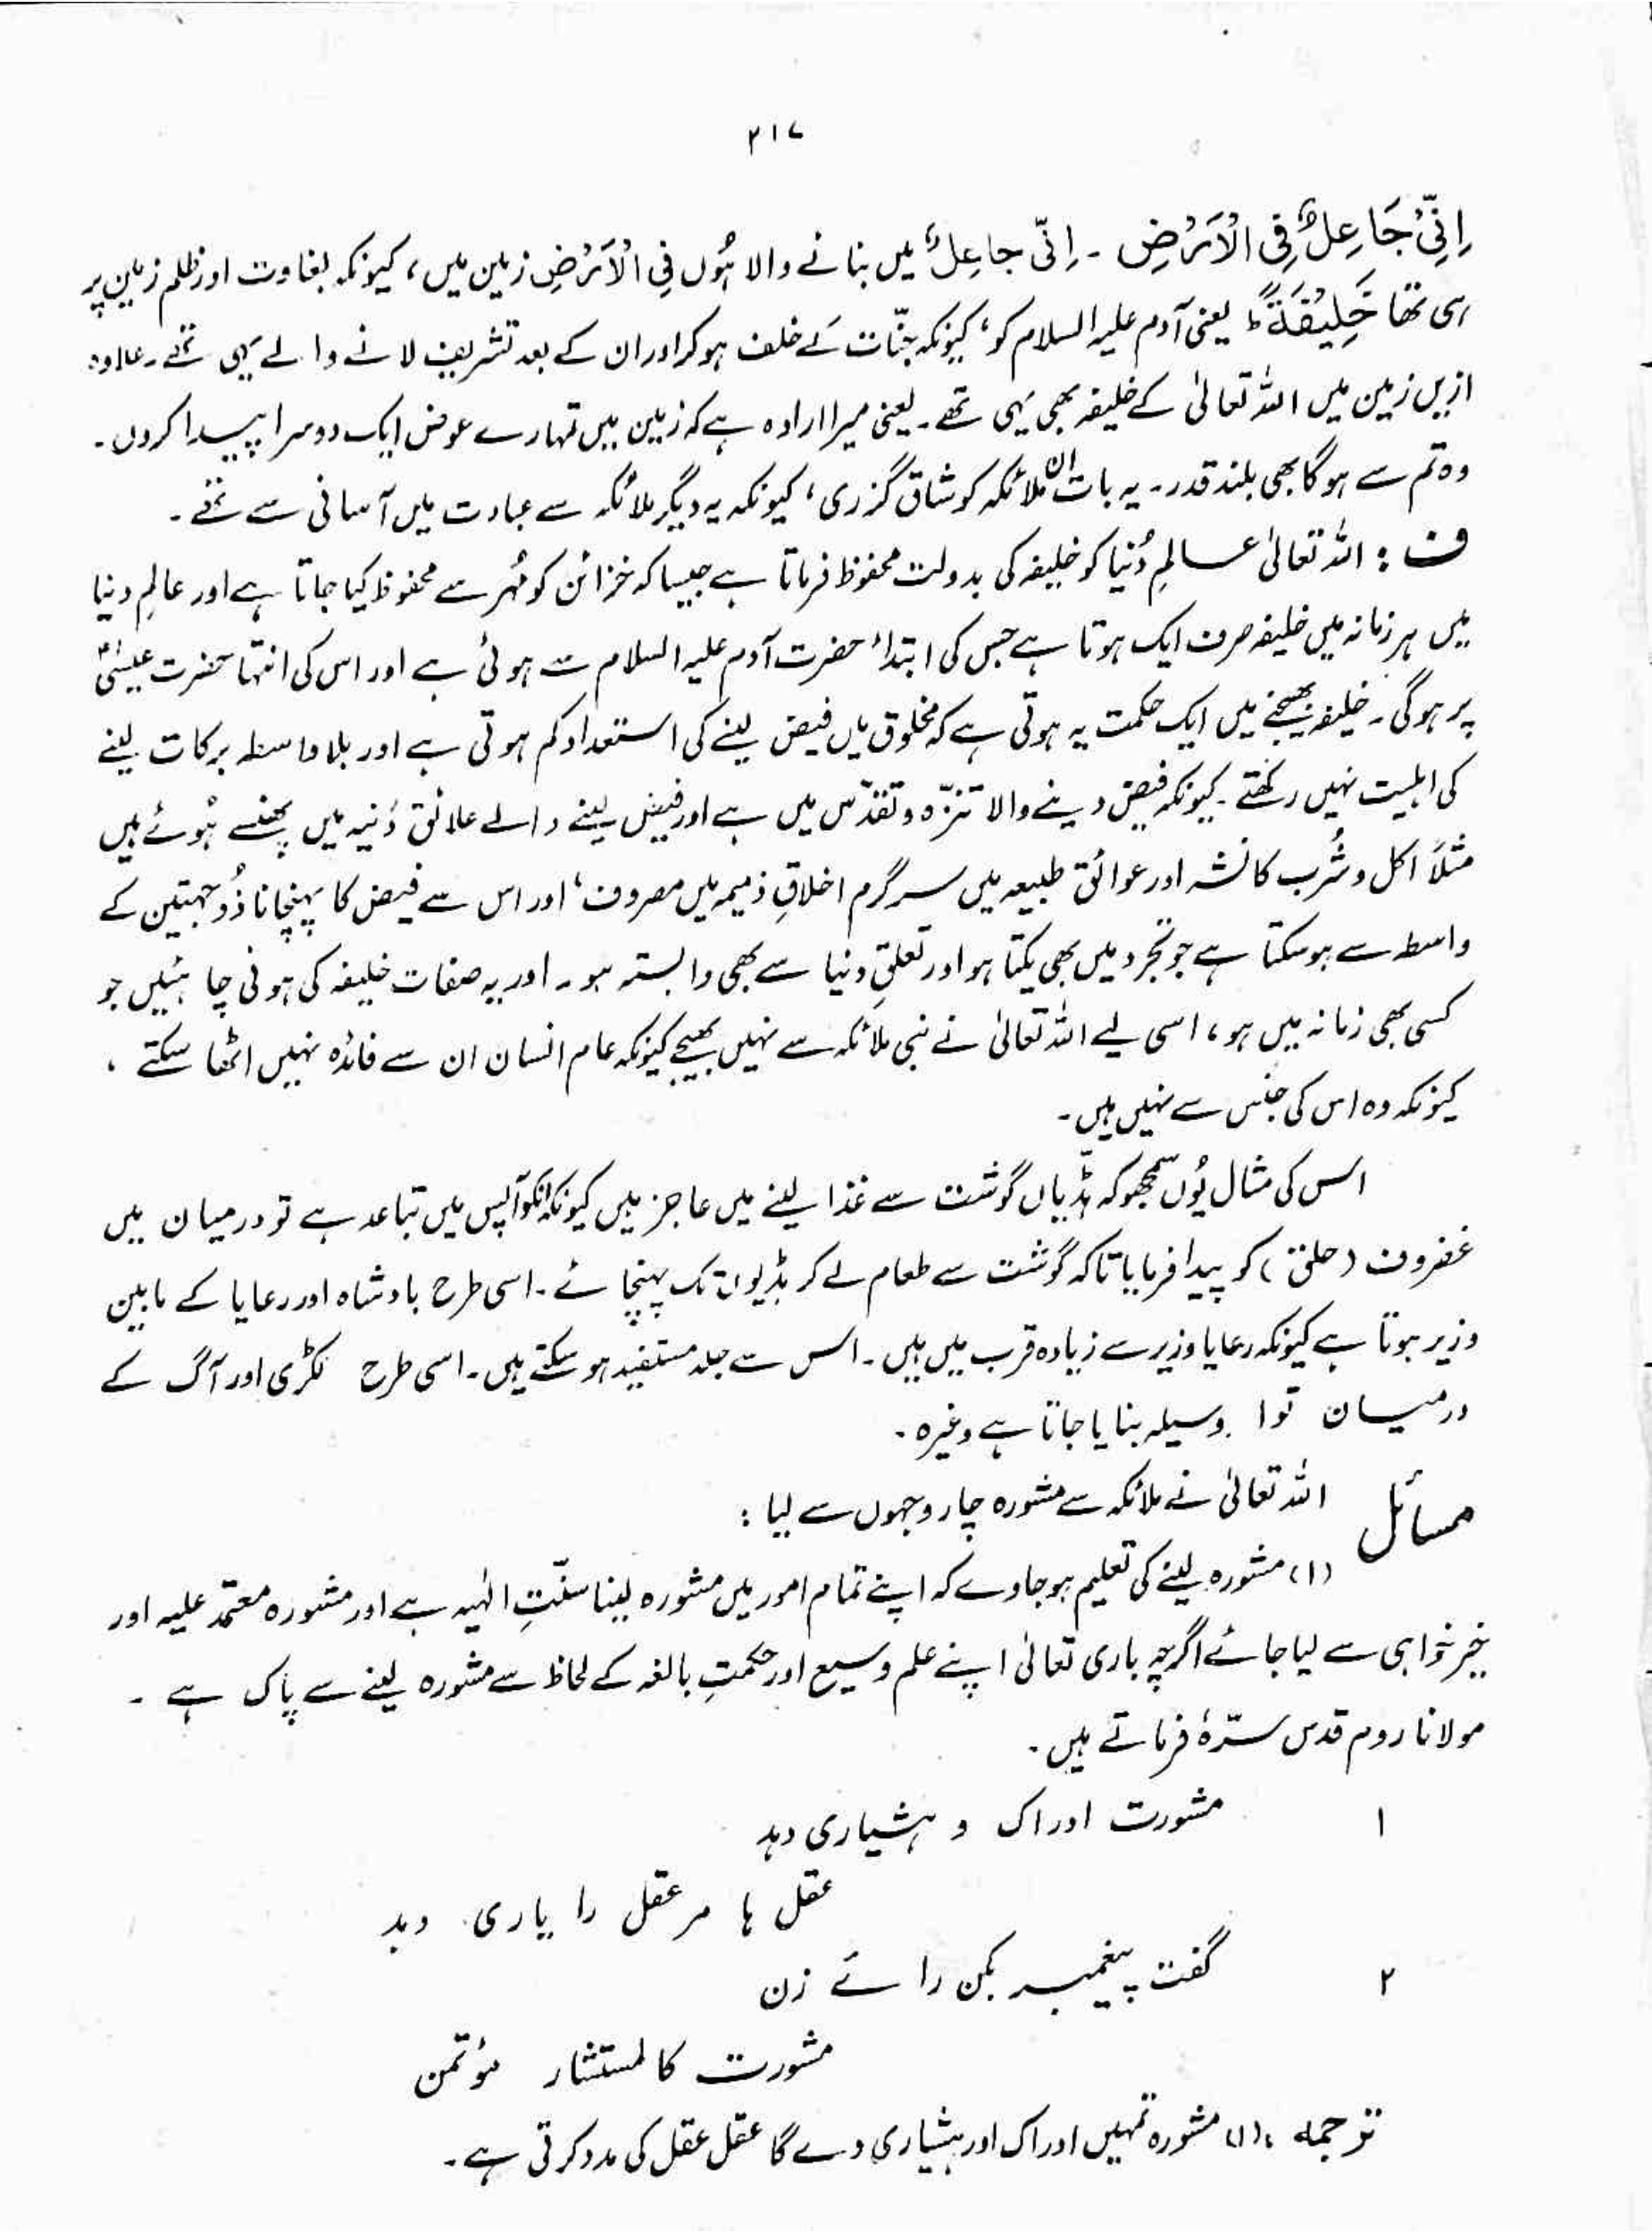 ۲۱۷
اِنِّیْ جَاعِلٌ فِی الْاَرْضِ ۔ اِنّی جاعِلٌ میں بنانے والا ہُوں فِی الْاَرْضِ زمین میں، کیونکہ بغاوت اور ظلم زمین پر
ہی تھا خَلِیْفَۃً ط یعنی آدم علیہ السلام کو، کیونکہ جنّات کے خلف ہو کر اور ان کے بعد تشریف لانے والے یہی تھے۔ علاوہ
ازیں زمین میں اللہ تعالیٰ کے خلیفہ بھی یہی تھے۔ یعنی میرا ارادہ ہے کہ زمین میں تمہارے عوض ایک دوسرا پیدا کروں۔
وہ تم سے ہو گا بھی بلند قدر۔ یہ بات ان ملائکہ کو شاق گزری، کیونکہ یہ دیگر ملائکہ سے عبادت میں آسانی سے تھے۔
ف : اللہ تعالیٰ عالمِ دُنیا کو خلیفہ کی بدولت محفوظ فرماتا ہے جیسا کہ خزائن کو مُہر سے محفوظ کیا جاتا ہے اور عالمِ دنیا
میں ہر زمانہ میں خلیفہ صرف ایک ہوتا ہے جس کی ابتداء حضرت آدم علیہ السلام سے ہوئی ہے اور اس کی انتہا حضرت عیسیٰؑ
پر ہوگی۔ خلیفہ بھیجنے میں ایک حکمت یہ ہوتی ہے کہ مخلوق یاں فیض لینے کی استعداد کم ہوتی ہے اور بلا واسطہ برکات لینے
کی اہلیت نہیں رکھتے۔ کیونکہ فیض دینے والا تنزّہ و تقدّس میں ہے اور فیض لینے والے علائق دَنیہ میں پھنسے ہُوئے ہیں
مثلاً اکل و شُرب کا نشہ اور عوائق طبیعہ میں سرگرم اخلاقِ ذمیمہ میں مصروف، اور اس سے فیض کا پہنچانا ذُو جہتین کے
واسطہ سے ہو سکتا ہے جو تجرد میں بھی یکتا ہو اور تعلقِ دنیا سے بھی وابستہ ہو۔ اور یہ صفات خلیفہ کی ہونی چاہئیں جو
کسی بھی زمانہ میں ہو، اسی لیے اللہ تعالیٰ نے نبی ملائکہ سے نہیں بھیجے کیونکہ عام انسان ان سے فائدہ نہیں اٹھا سکتے ،
کیونکہ وہ اس کی جنس سے نہیں ہیں۔
اس کی مثال یُوں سمجھو کہ ہڈّیاں گوشت سے غذا لینے میں عاجز ہیں کیونکہ انکو آپس میں تباعد ہے تو درمیان میں
غضروف (حلق) کو پیدا فرمایا تاکہ گوشت سے طعام لے کر ہڈیوں تک پہنچائے۔ اسی طرح بادشاہ اور رعایا کے مابین
وزیر ہوتا ہے کیونکہ رعایا وزیر سے زیادہ قرب میں ہیں۔ اس سے جلد مستفید ہو سکتے ہیں۔ اسی طرح لکڑی اور آگ کے
درمیان توا وسیلہ بنایا جاتا ہے وغیرہ۔
مسائل اللہ تعالیٰ نے ملائکہ سے مشورہ چار وجہوں سے لیا :
(۱) مشورہ لینے کی تعلیم ہو جاوے کہ اپنے تمام امور میں مشورہ لینا سنّتِ الٰہیہ ہے اور مشورہ معتمد علیہ اور
خیر خواہی سے لیا جائے اگرچہ باری تعالیٰ اپنے علم وسیع اور حکمتِ بالغہ کے لحاظ سے مشورہ لینے سے پاک ہے ۔
مولانا روم قدس سرّہٗ فرماتے ہیں۔
۱ مشورت ادراک و ہشیاری دہد
عقل ہا مر عقل را یاری دہد
۲ گفت پیغمبر بکن رائے زن
مشورت کالمستشار مؤتمن
ترجمہ : (۱) مشورہ تمہیں ادراک اور ہشیاری دے گا عقل عقل کی مدد کرتی ہے۔